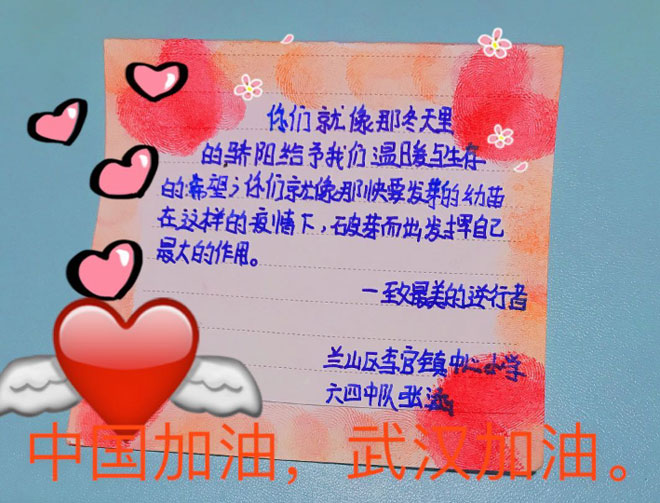 你们就像那冬天里
的骄阳给予我们温暖与生存
的希望；你们就像那快要发芽的幼苗
在这样的疫情下，破芽而出发挥自己
最大的作用。
一致最美的逆行者
兰山区李官镇中心小学
六四中队张
中国加油，武汉加油。